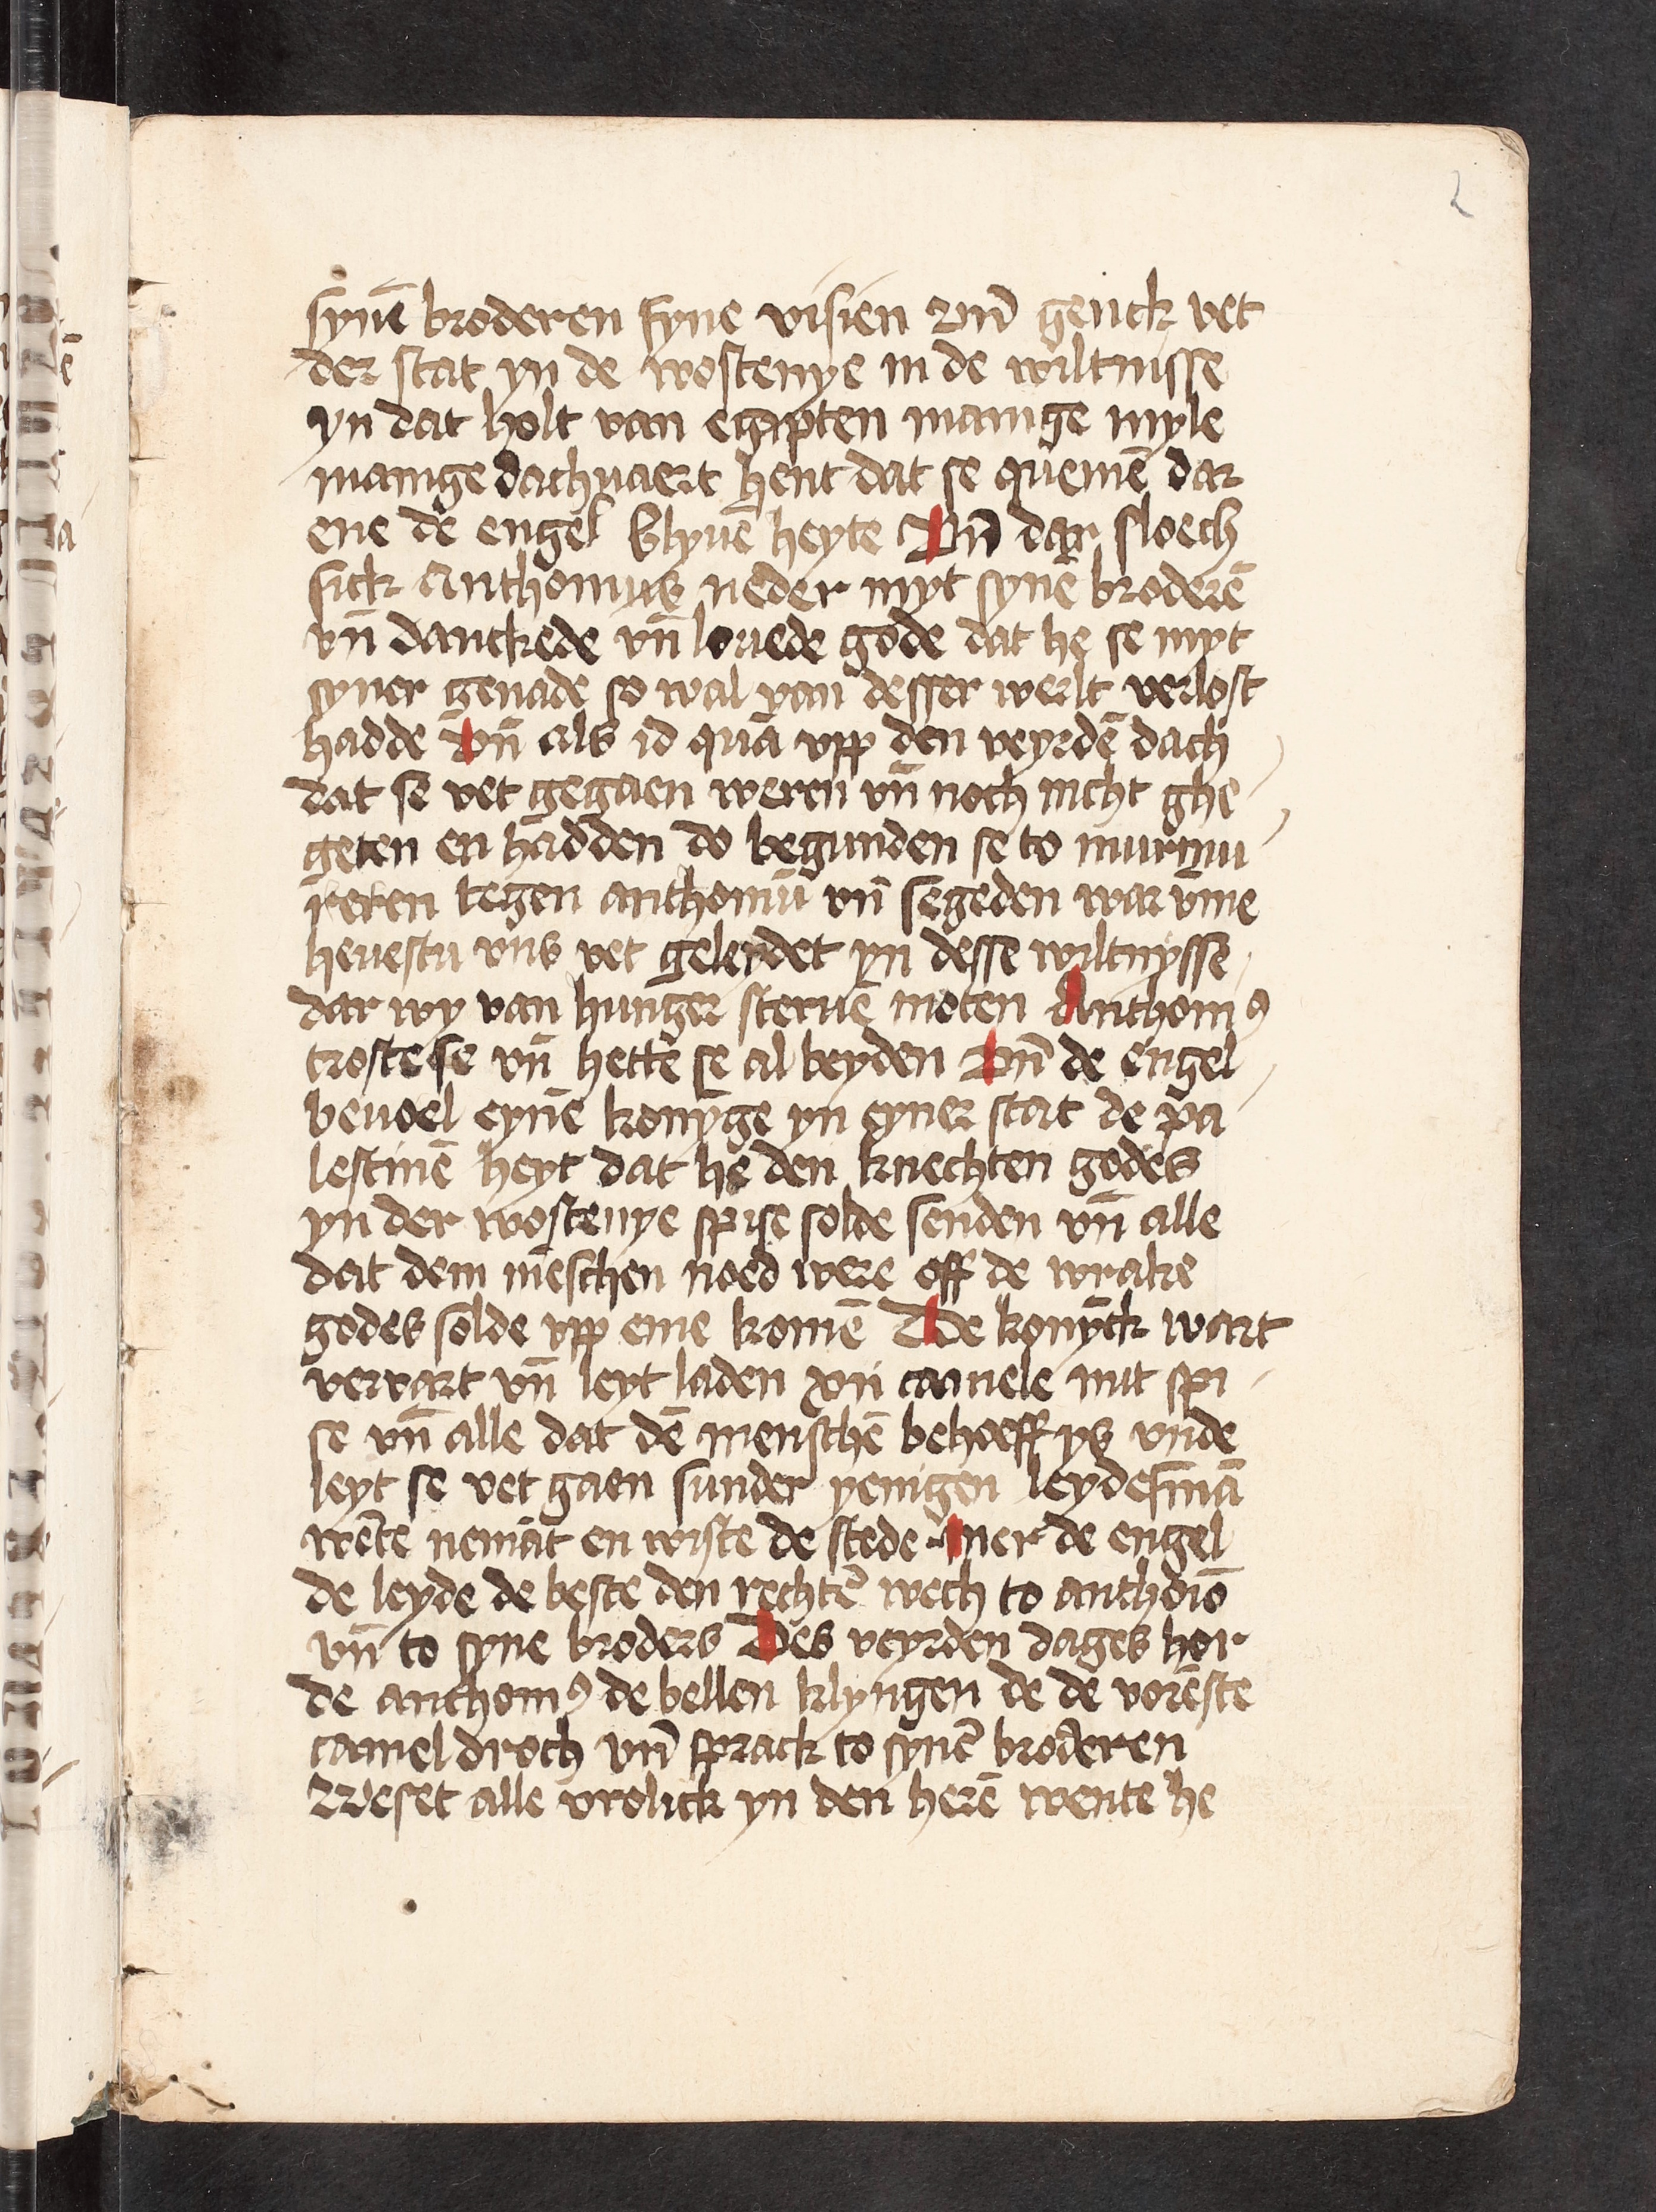 2
synē broderen syne visien Vnd̄ genck vet
der stat yn de wostenye in de wiltnisse
yn dat holt van egipten mannige myle
mannige dachuaert hent dat se quemē dar
ene de engel blyuē heyte Vn̄ dar sloech
sick Anthonius neder myt synē broderē
vn̄ danckede vn̄ louede gode dat he se myt
syner genade so wal van desser werlt verlost
hadde Vn̄ als id quā vpp den veyrdē dach
dat se vet gegaen weren vn̄ noch nicht ghe
geten en hadden do begunden se to murmu
reren tegen anthoniū vn̄ segeden war vm̄e
heuestu vns vet geleydet yn desse wiltnysse
dar wy van hunger steruē moten Anthoniꝰ
troste se vn̄ hette se al beyden Vn̄ de engel
beuoel eynē konynge yn eyner stat de pa
lestinē heyt dat he den knechten godes
yn der wostenye spise solde senden vn̄ alle
dat dem mēschen noed were off de wrake
godes solde vpp eme komē De konynck wart
vervart vn̄ leyt laden xii camele mit spi
se vn̄ alle dat dē menschē behoeff ys vnde
leyt se vet gaen sunder yenigen leydesmā
wēte nemāt en wiste de stede mer de engel
de leyde de beste den rechtē wech to anthōio
vn̄ to syne broders Des veyrden dages hor
de anthoniꝰ de bellen klyngen de de vorēste
camel droch vn̄ sprack to synē broderen
Weset alle vrolick yn den herē wente he